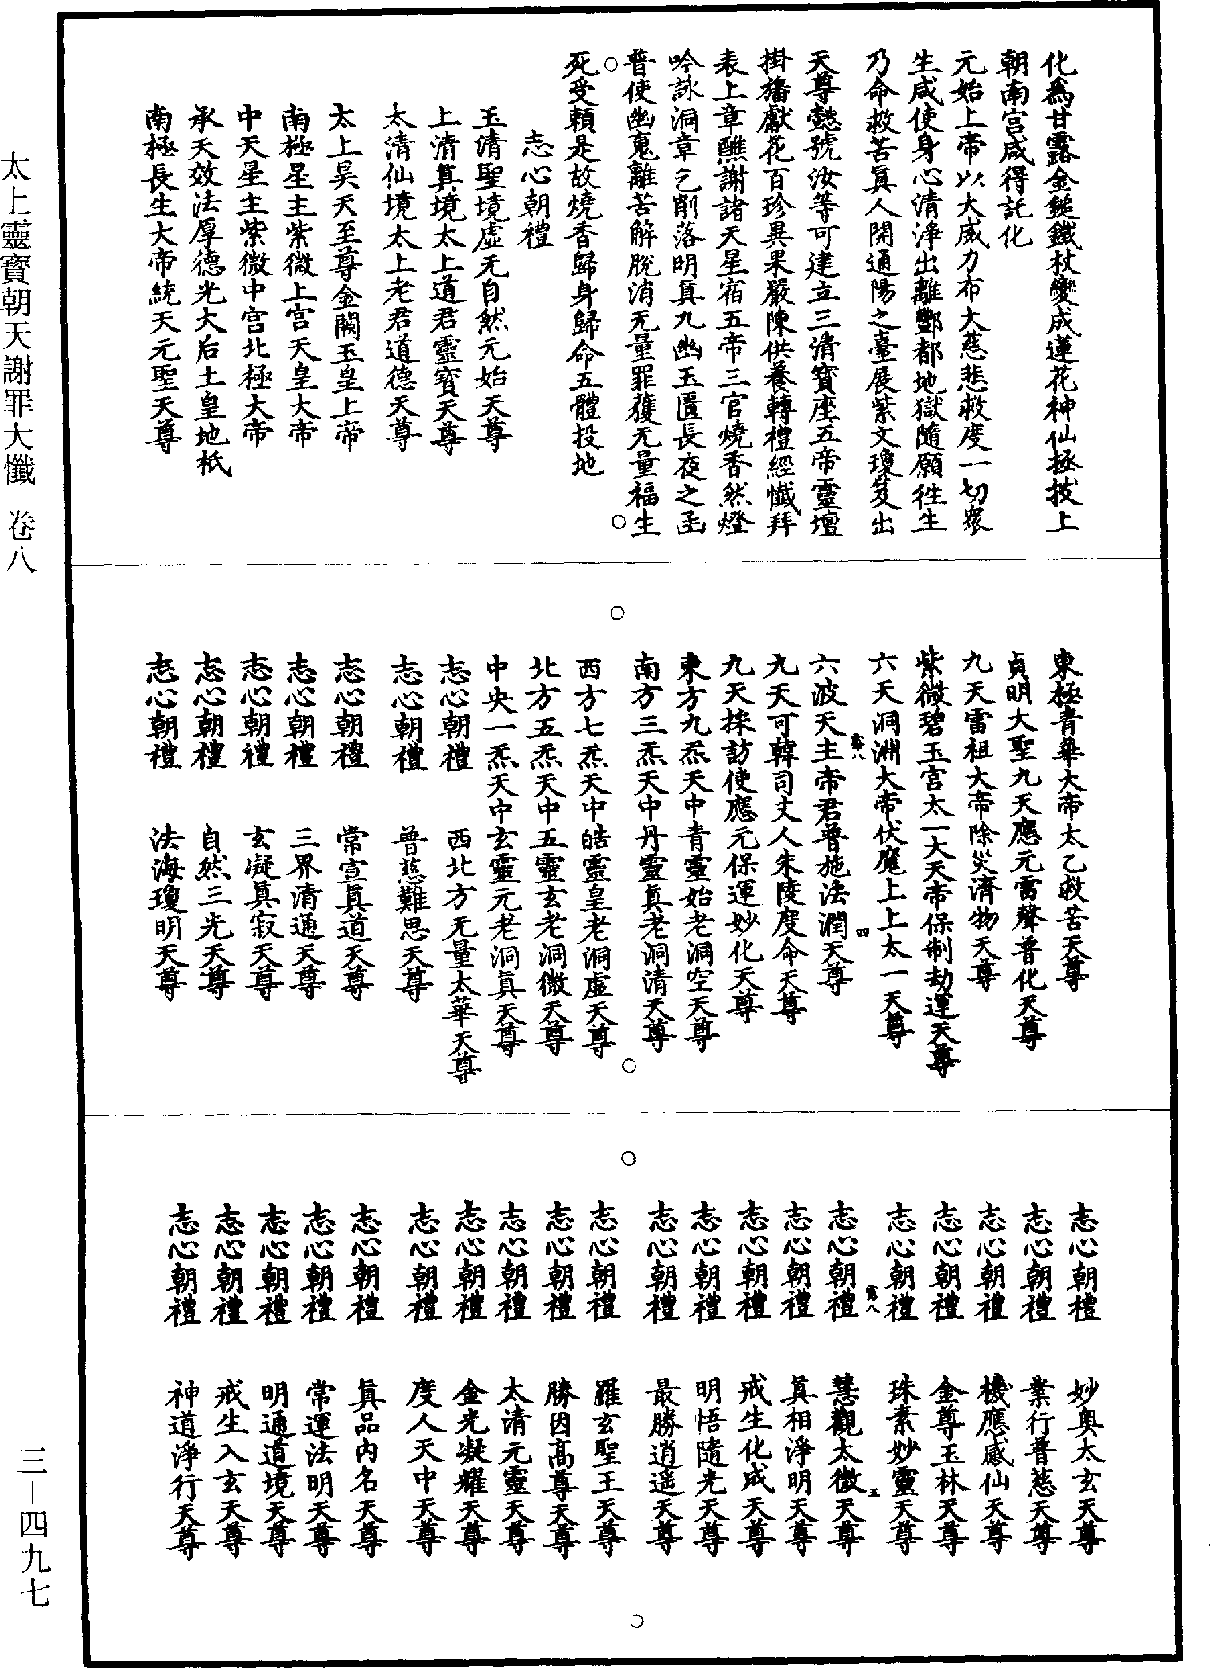 化爲甘露金鎚鐵杖變成蓮花神仙拯拔上
朝南宮咸得託化
元始上帝以大威力布大慈悲救度一切衆
生咸使身心清淨出離酆都地獄隨願往生
乃命救苦眞人開通陽之臺展紫文瓊笈出
天尊懿號汝等可建立三清寶座五帝靈壇
掛旛獻花百珍異果嚴陳供養轉禮經懺拜
表上章醮謝諸天星宿五帝三官燒香然燈
吟詠洞章乞削落明眞九幽玉匱長夜之函
普使幽䰟離苦解脫消无量罪獲无量福生
死受賴是故燒香歸身歸命五體投地
志心朝禮
玉清聖境虛无自然元始天尊
上清眞境太上道君靈寶天尊
太清仙境太上老君道德天尊
太上昊天至尊金闕玉皇上帝
南極星主紫微上宮天皇大帝
中天星主紫微中宮北極大帝
承天效法厚德光大后土皇地祇
南極長生大帝統天元聖天尊
東極青華大帝太乙救苦天尊
貞明大聖九天應元雷聲普化天尊
九天雷祖大帝除災濟物天尊
紫微碧玉宮太一大天帝保制劫運天尊
六天洞淵大帝伏魔上上太一天尊
六波天主帝君普施法潤天尊
九天可韓司丈人朱陵度命天尊
九天採訪使應元保運妙化天尊
東方九炁天中青靈始老洞空天尊
南方三炁天中丹靈眞老洞清天尊
西方七炁天中皓靈皇老洞虛天尊
北方五炁天中五靈玄老洞微天尊
中央一炁天中玄靈元老洞眞天尊
志心朝禮 西北方无量太華天尊
志心朝禮 普慈難思天尊
志心朝禮 常宣眞道天尊
志心朝禮 三界清通天尊
志心朝禮 玄凝眞寂天尊
志心朝禮 自然三光天尊
志心朝禮 法海瓊明天尊
志心朝禮 妙奧太玄天尊
志心朝禮 業行普慈天尊
志心朝禮 機應感仙天尊
志心朝禮 金尊玉林天尊
志心朝禮 珠素妙靈天尊
志心朝禮 慧觀太微天尊
志心朝禮 眞相淨明天尊
志心朝禮 戒生化成天尊
志心朝禮 明悟隨光天尊
志心朝禮 最勝逍遥天尊
志心朝禮 羅玄聖王天尊
志心朝禮 勝因高尊天尊
志心朝禮 太清元靈天尊
志心朝禮 金光凝耀天尊
志心朝禮 度人天中天尊
志心朝禮 眞品内名天尊
志心朝禮 常運法明天尊
志心朝禮 明通道境天尊
志心朝禮 戒生入玄天尊
志心朝禮 神道淨行天尊
太上靈寶朝天謝罪大懺 卷八
三－四九七